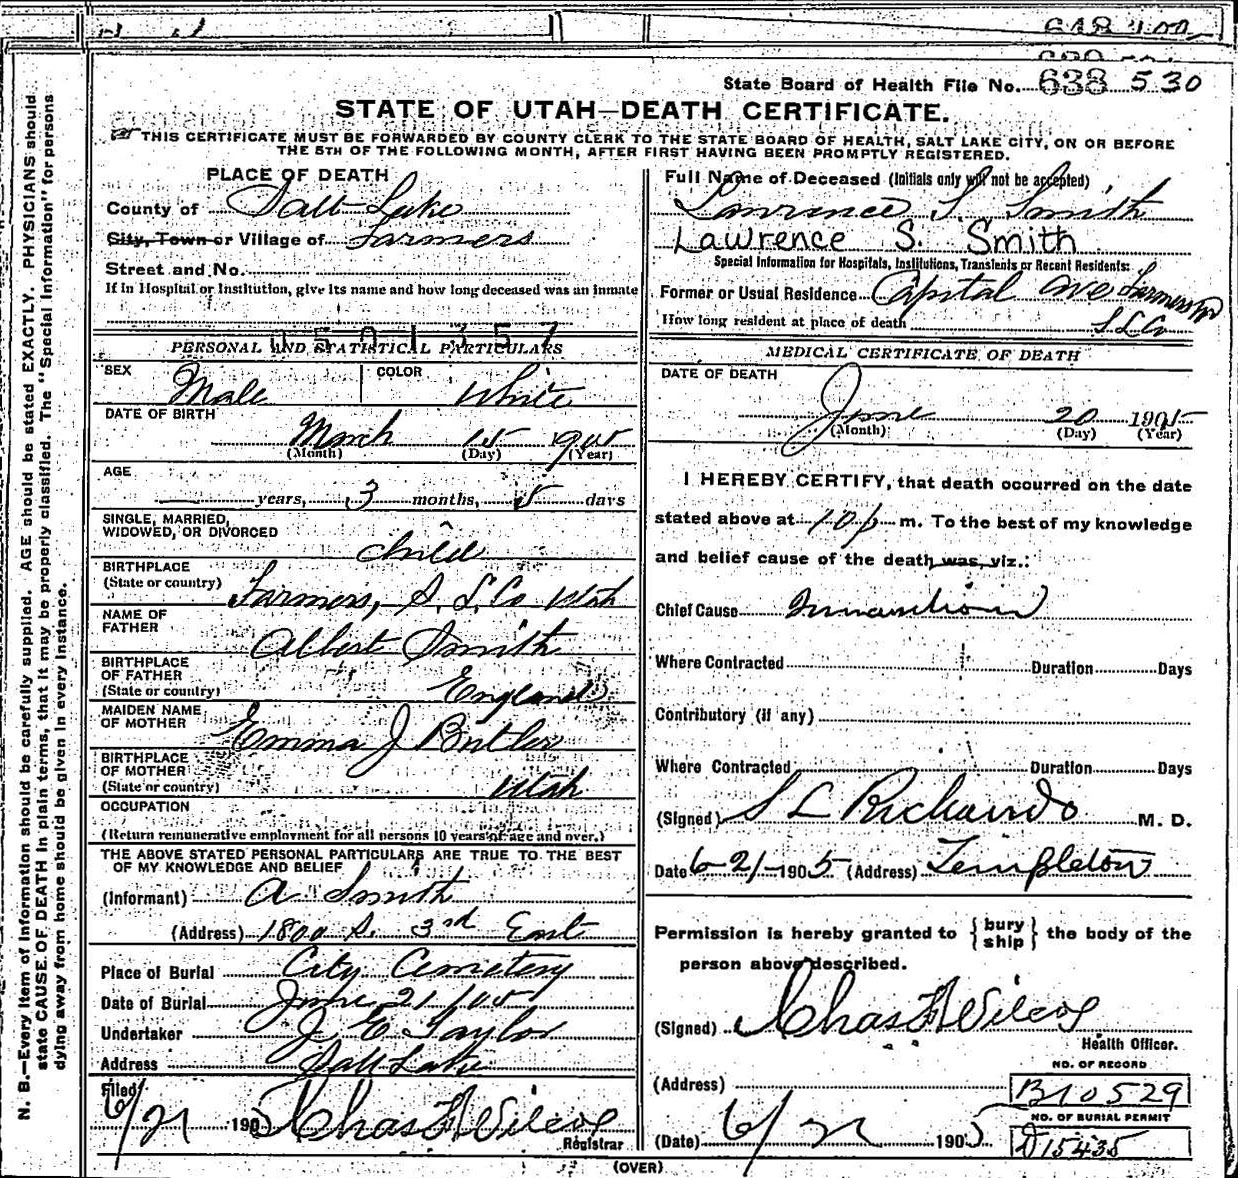 State Board of Health File No. 638 530
STATE OF UTAH—DEATH CERTIFICATE.
THIS CERTIFICATE MUST BE FORWARDED BY COUNTY CLERK TO THE STATE BOARD OF HEALTH, SALT LAKE CITY, ON OR BEFORE
THE 5TH OF THE FOLLOWING MONTH, AFTER FIRST HAVING BEEN PROMPTLY REGISTERED.
PLACE OF DEATH
County of Salt Lake
City, Town or Village of Farmers
Street and No.
If in Hospital or Institution, give its name and how long deceased was an inmate
0501357
PERSONAL AND STATISTICAL PARTICULARS
SEX Male COLOR White
DATE OF BIRTH
March 15 1905
(Month) (Day) (Year)
AGE
years, 3 months, 5 days
SINGLE, MARRIED,
WIDOWED, OR DIVORCED
child
BIRTHPLACE
(State or country) Farmers, S. L. Co Utah
NAME OF
FATHER
Albert Smith
BIRTHPLACE
OF FATHER
(State or country) England
MAIDEN NAME
OF MOTHER
Emma J Butler
BIRTHPLACE
OF MOTHER
(State or country) Utah
OCCUPATION
(Return remunerative employment for all persons 10 years of age and over.)
THE ABOVE STATED PERSONAL PARTICULARS ARE TRUE TO THE BEST
OF MY KNOWLEDGE AND BELIEF
(Informant) A Smith
(Address) 1800 S. 3rd East
Place of Burial City Cemetery
Date of Burial June 21/05
Undertaker J. E. Taylor
Address Salt Lake
Filed
6/21 1905 Chas F Wilcox
Registrar
Full Name of Deceased (Initials only will not be accepted)
Lawrence S. Smith
Lawrence S. Smith
Special Information for Hospitals, Institutions, Transients or Recent Residents:
Former or Usual Residence Capital Ave Farmers
How long resident at place of death S L Co
MEDICAL CERTIFICATE OF DEATH
DATE OF DEATH
June 20 1905
(Month) (Day) (Year)
I HEREBY CERTIFY, that death occurred on the date
stated above at 10 p m. To the best of my knowledge
and belief cause of the death was, viz.:
Chief Cause Inanition
Where Contracted Duration Days
Contributory (if any)
Where Contracted Duration Days
(Signed) S L Richards M. D.
Date 6-21-1905 (Address) Templeton
Permission is hereby granted to { bury
ship } the body of the
person above described.
(Signed) Chas F Wilcox
Health Officer.
(Address)
NO. OF RECORD
B10529
NO. OF BURIAL PERMIT
D15435
(Date) 6/21 1905
(OVER)
N. B.—Every item of information should be carefully supplied. AGE should be stated EXACTLY. PHYSICIANS should
state CAUSE OF DEATH in plain terms, that it may be properly classified. The "Special Information" for persons
dying away from home should be given in every instance.